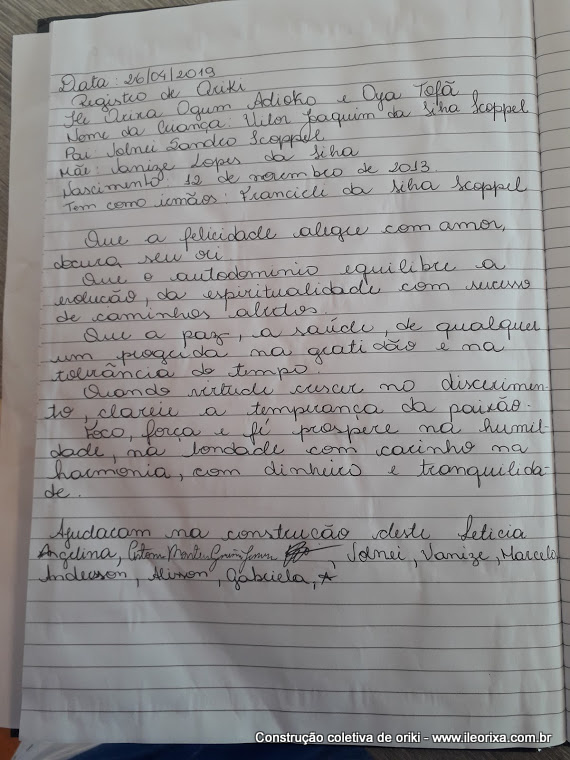 Data: 26/04/2019
Registro de Oriki
Ile Orixa Ogum Adioko e Oya Tofã
Nome da Criança: Vitor Joaquim da Silva Scoppel
Pai Volnei Sandro Scoppel
Mãe: Vanize Lopes da Silva
Nascimento: 12 de novembro de 2013
Tem como irmãos: Francieli da Silva Scoppel
Que a felicidade alegre com amor,
doçura seu ori
Que o autodominio equilibre a
evolução, da espiritualidade com sucesso
de caminhos abertos.
Que a paz, a saúde, de qualquer
um progrida na gratidão e na
tolerância do tempo.
Quando virtude crescer no discernimen-
to, clareie a temperança da paixão.
Foco, força e fé prospere na humil-
dade, na bondade com carinho na
harmonia, com dinheiro e tranquilida-
de.
Ajudaram na construção deste Leticia
Angelina, , Volnei, Vanize, Marcelo
Anderson, Alisson, Gabriela,
Construção coletiva de oriki - www.ileorixa.com.br